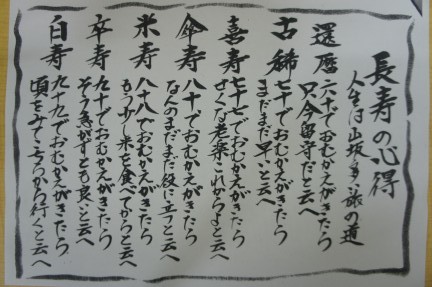 長寿の心得
人生は山坂多い旅の道
還暦
六十でおむかえがきたら
只今留守だと云へ
古稀
七十でおむかえがきたら
まだまだ早いと云へ
喜寿
七十七でおむかえがきたら
せくな老楽これからよと云へ
傘寿
八十でおむかえがきたら
なんのまだまだ役に立つと云へ
米寿
八十八でおむかえがきたら
もう少し米を食べてからと云へ
卒寿
九十でおむかえがきたら
そう急がずとも良いと云へ
白寿
九十九でおむかえがきたら
頃をみてこちらから行くと云へ